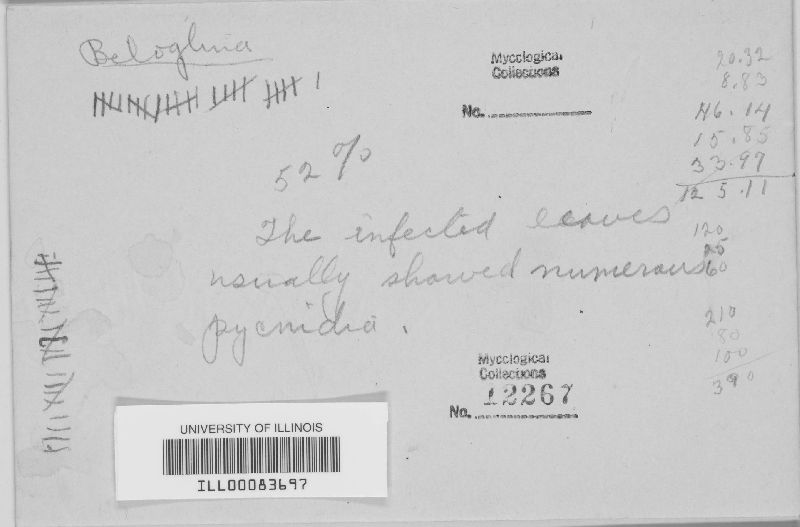 Beloglina
Mycological
Collections
No.
52 %
The infected leaves
usually showed numerous
pycnidia.
20.32
8.83
46.14
15.85
33.97
125.11
120
25
60
210
80
100
390
Mycological
Collections
No. 12267
UNIVERSITY OF ILLINOIS
ILL00083697